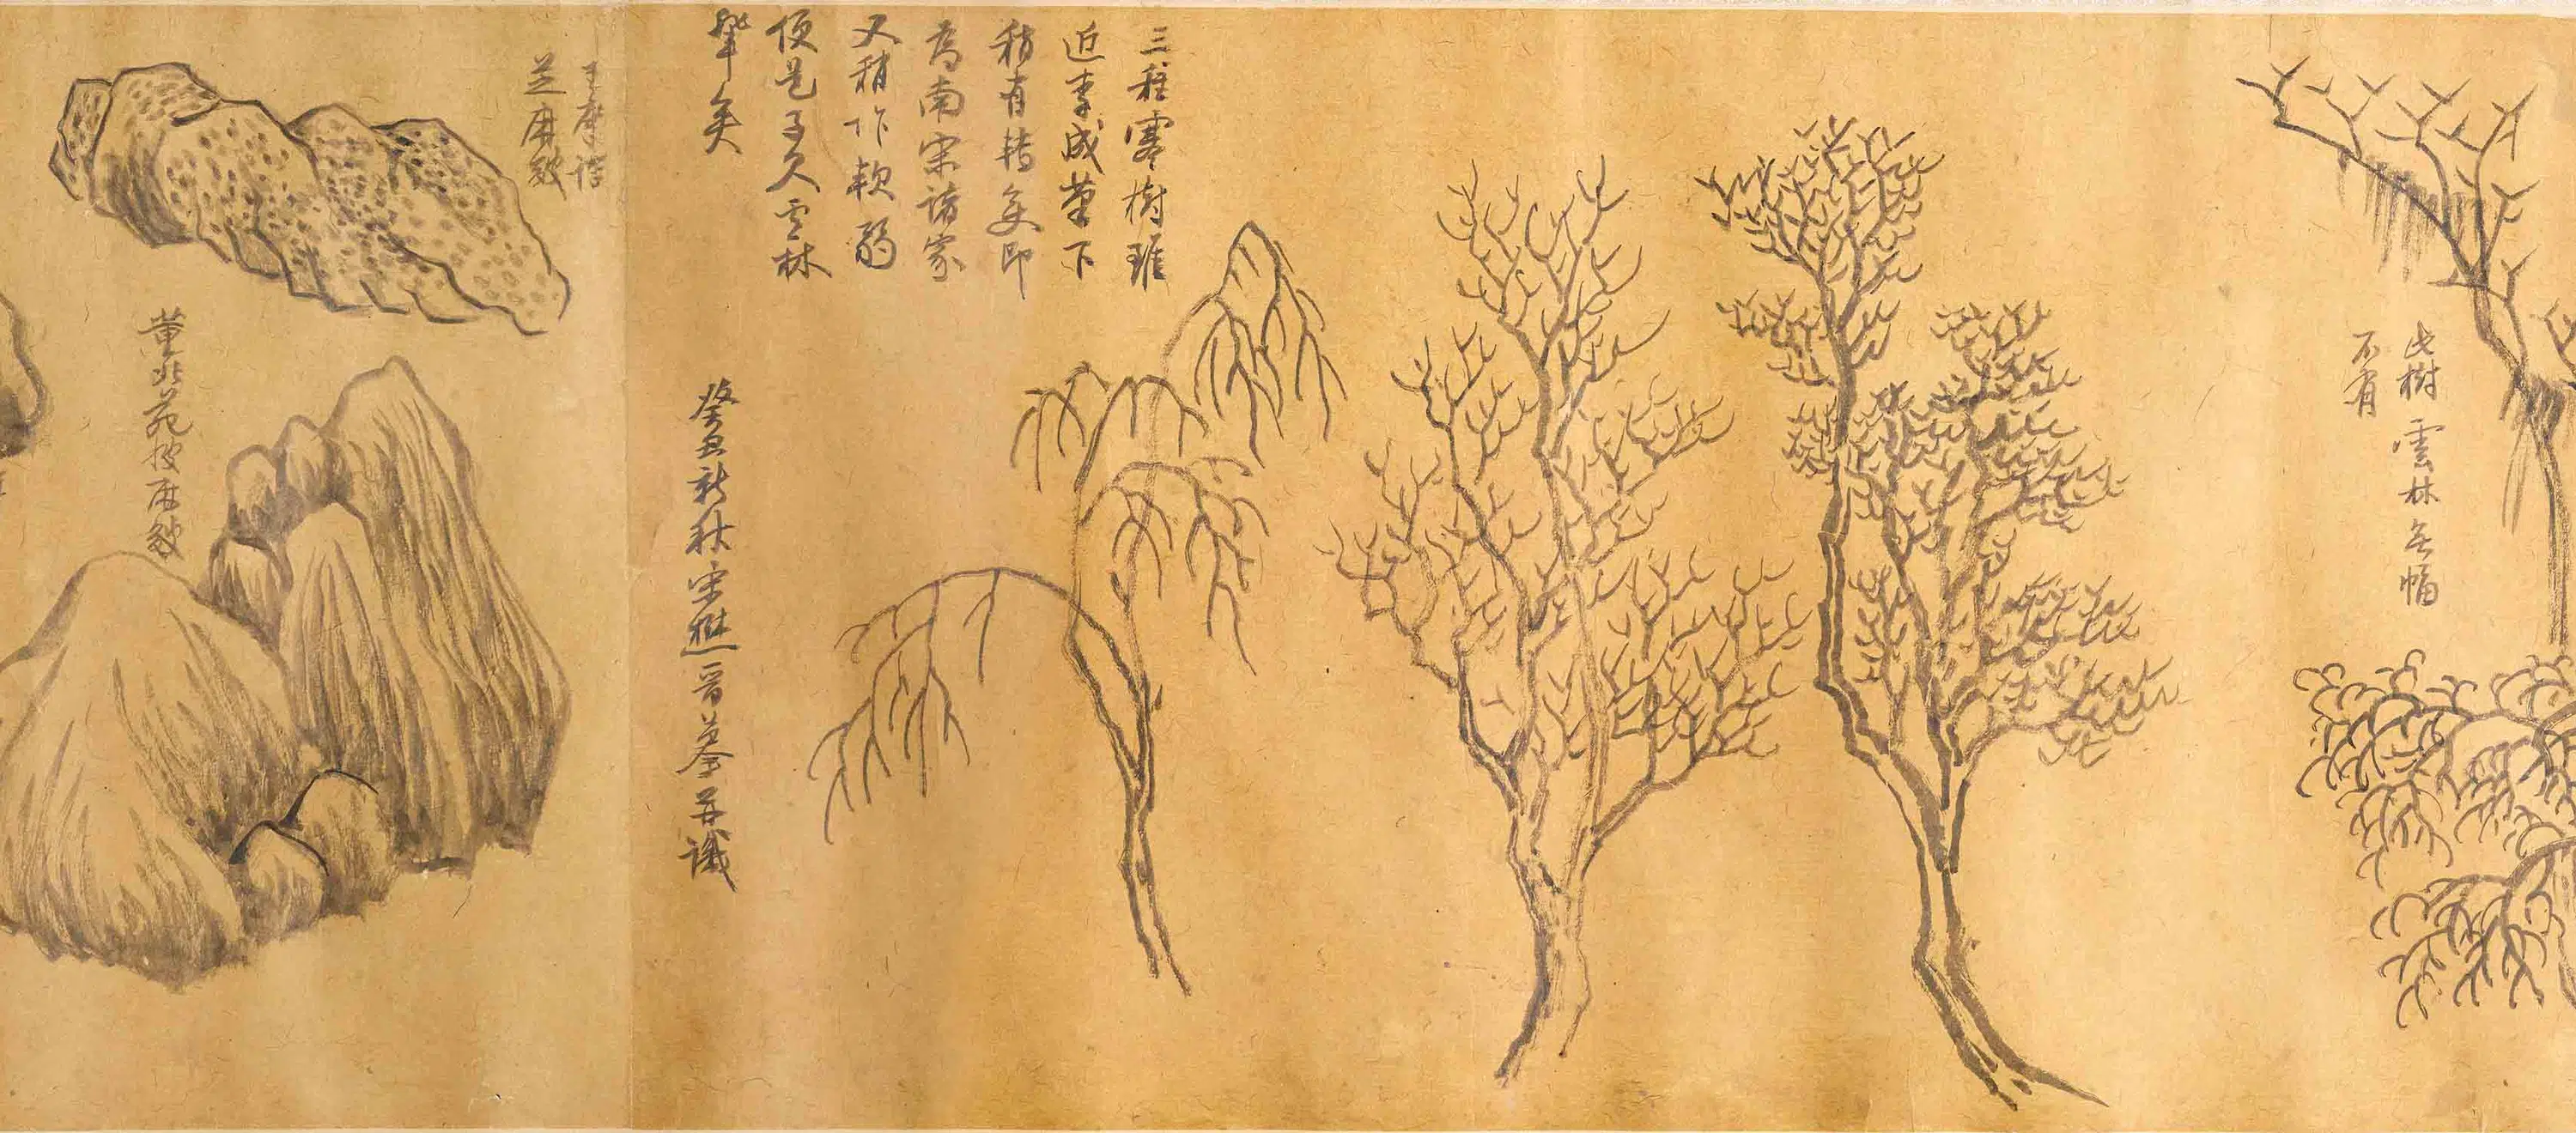 此樹雲林each幅
不有
三種寒樹雖
近李成筆下
稍有轉矣即
為南宋諸家
又稍作軟弱
便是子久雲林
輩矣
癸丑新秋宋懋晉摹并識
王摩詰
芝麻皴
董北苑披麻皴